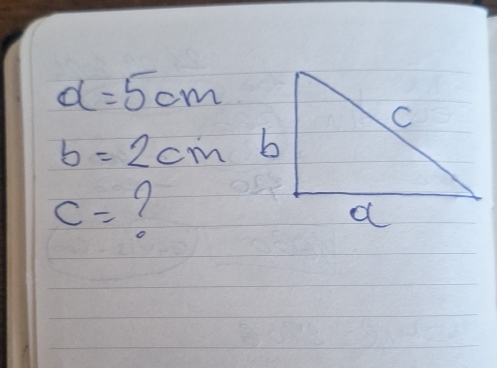 a=5cm
b=2cm
c=?
b
c
a